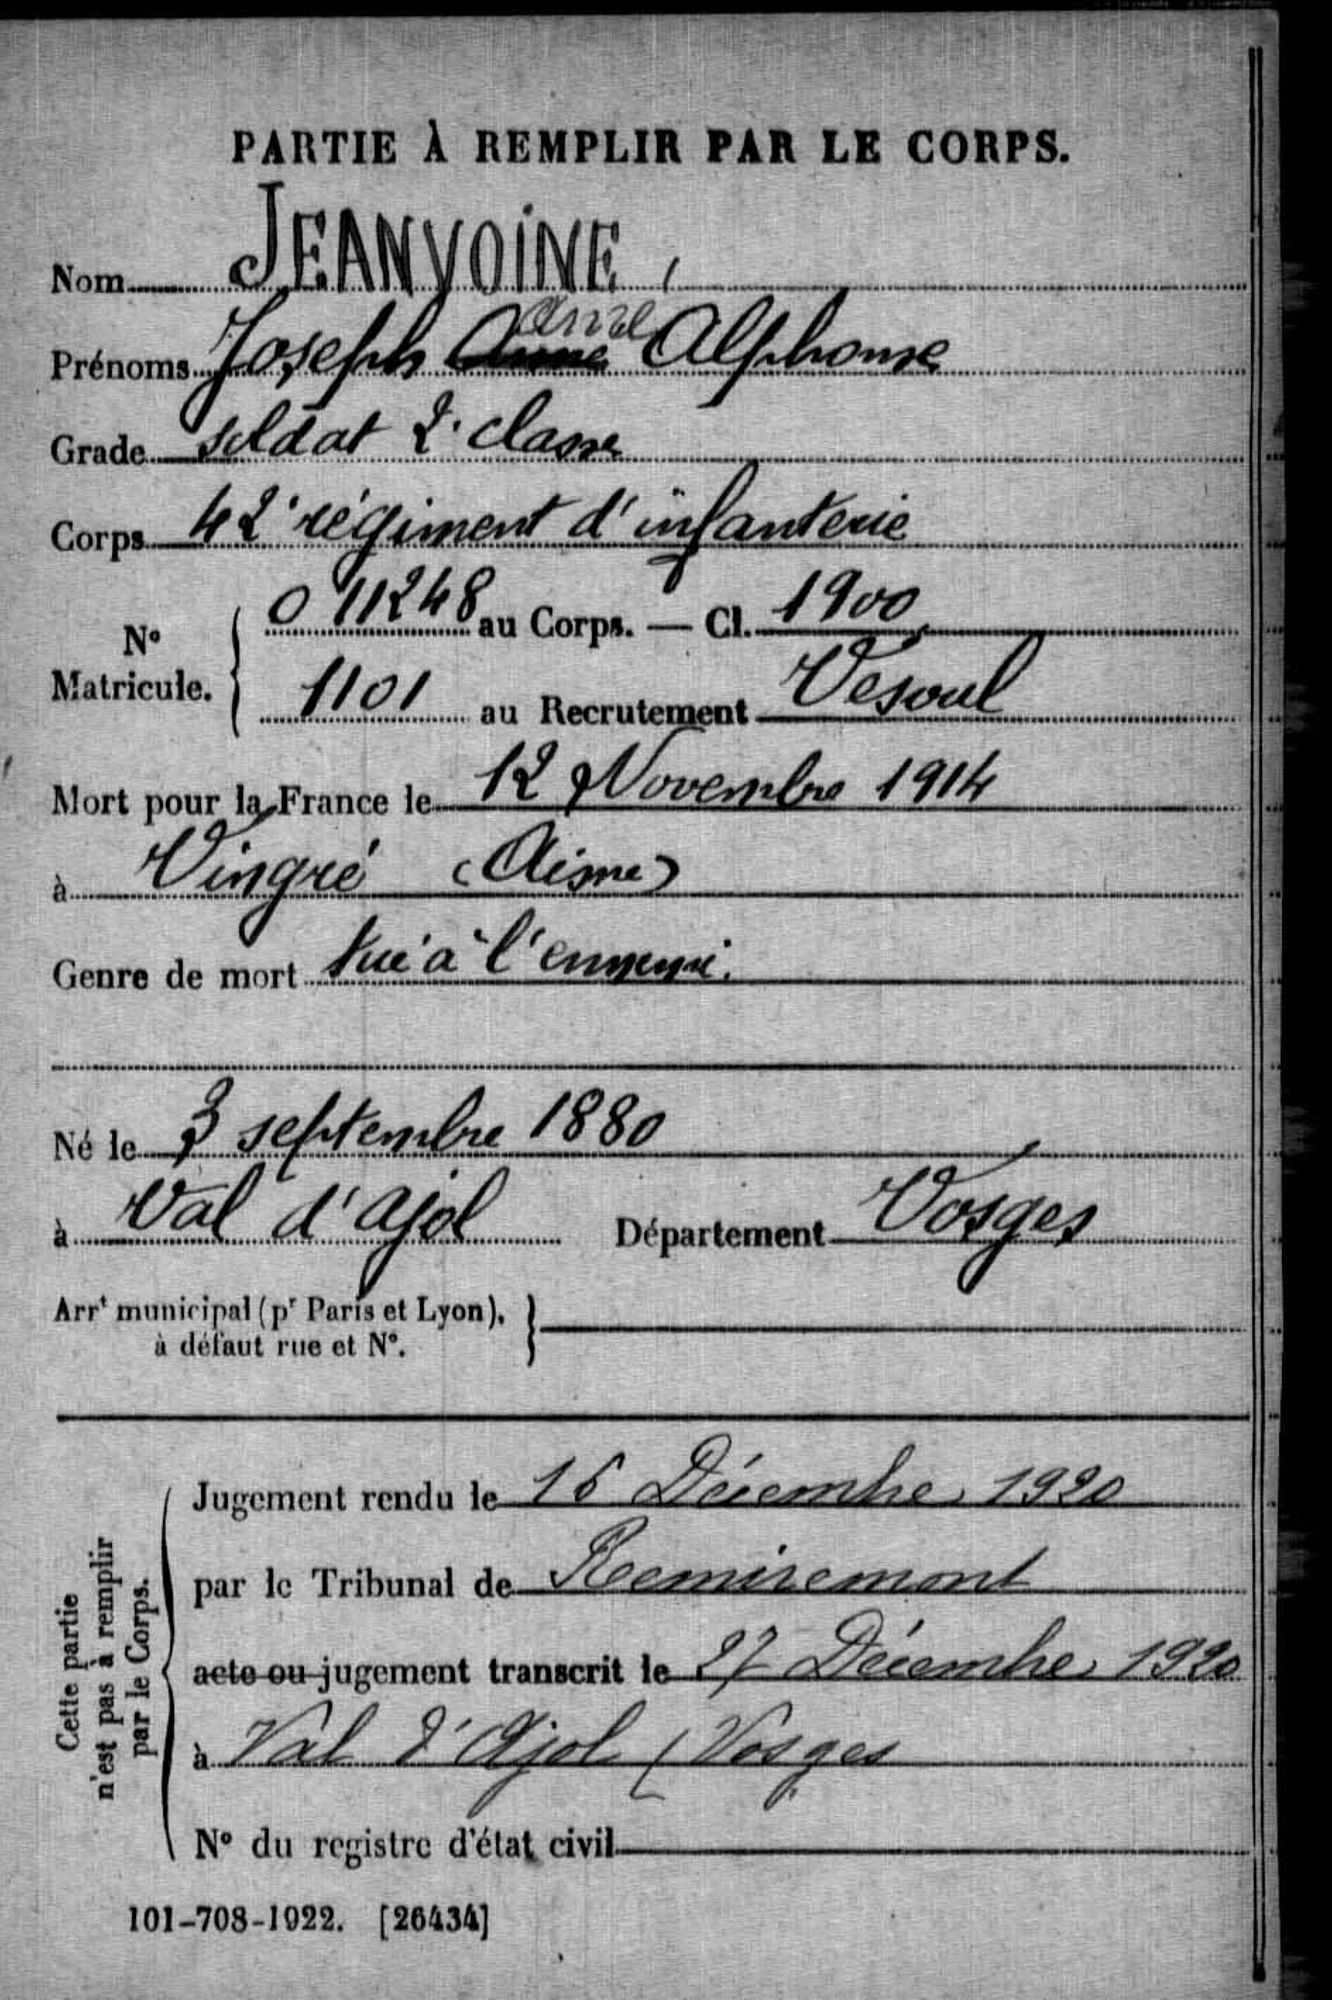 PARTIE À REMPLIR PAR LE CORPS.
Nom JEANVOINE
Prénoms Joseph Anne Alphonse
Grade soldat 2e classe
Corps 42e régiment d'infanterie
No Matricule. 0 11248 au Corps. — Cl. 1900
1101 au Recrutement Vesoul
Mort pour la France le 12 Novembre 1914
à Vingré (Aisne)
Genre de mort tué à l'ennemi.
Né le 3 septembre 1880
à Val d'Ajol Département Vosges
Arrt municipal (pr Paris et Lyon),
à défaut rue et No.
Cette partie
n'est pas à remplir
par le Corps.
Jugement rendu le Décembre 1920
par le Tribunal de Remiremont
acte ou jugement transcrit le 27 Décembre 1920
à Val d'Ajol (Vosges
No du registre d'état civil
101-708-1922. [26434]